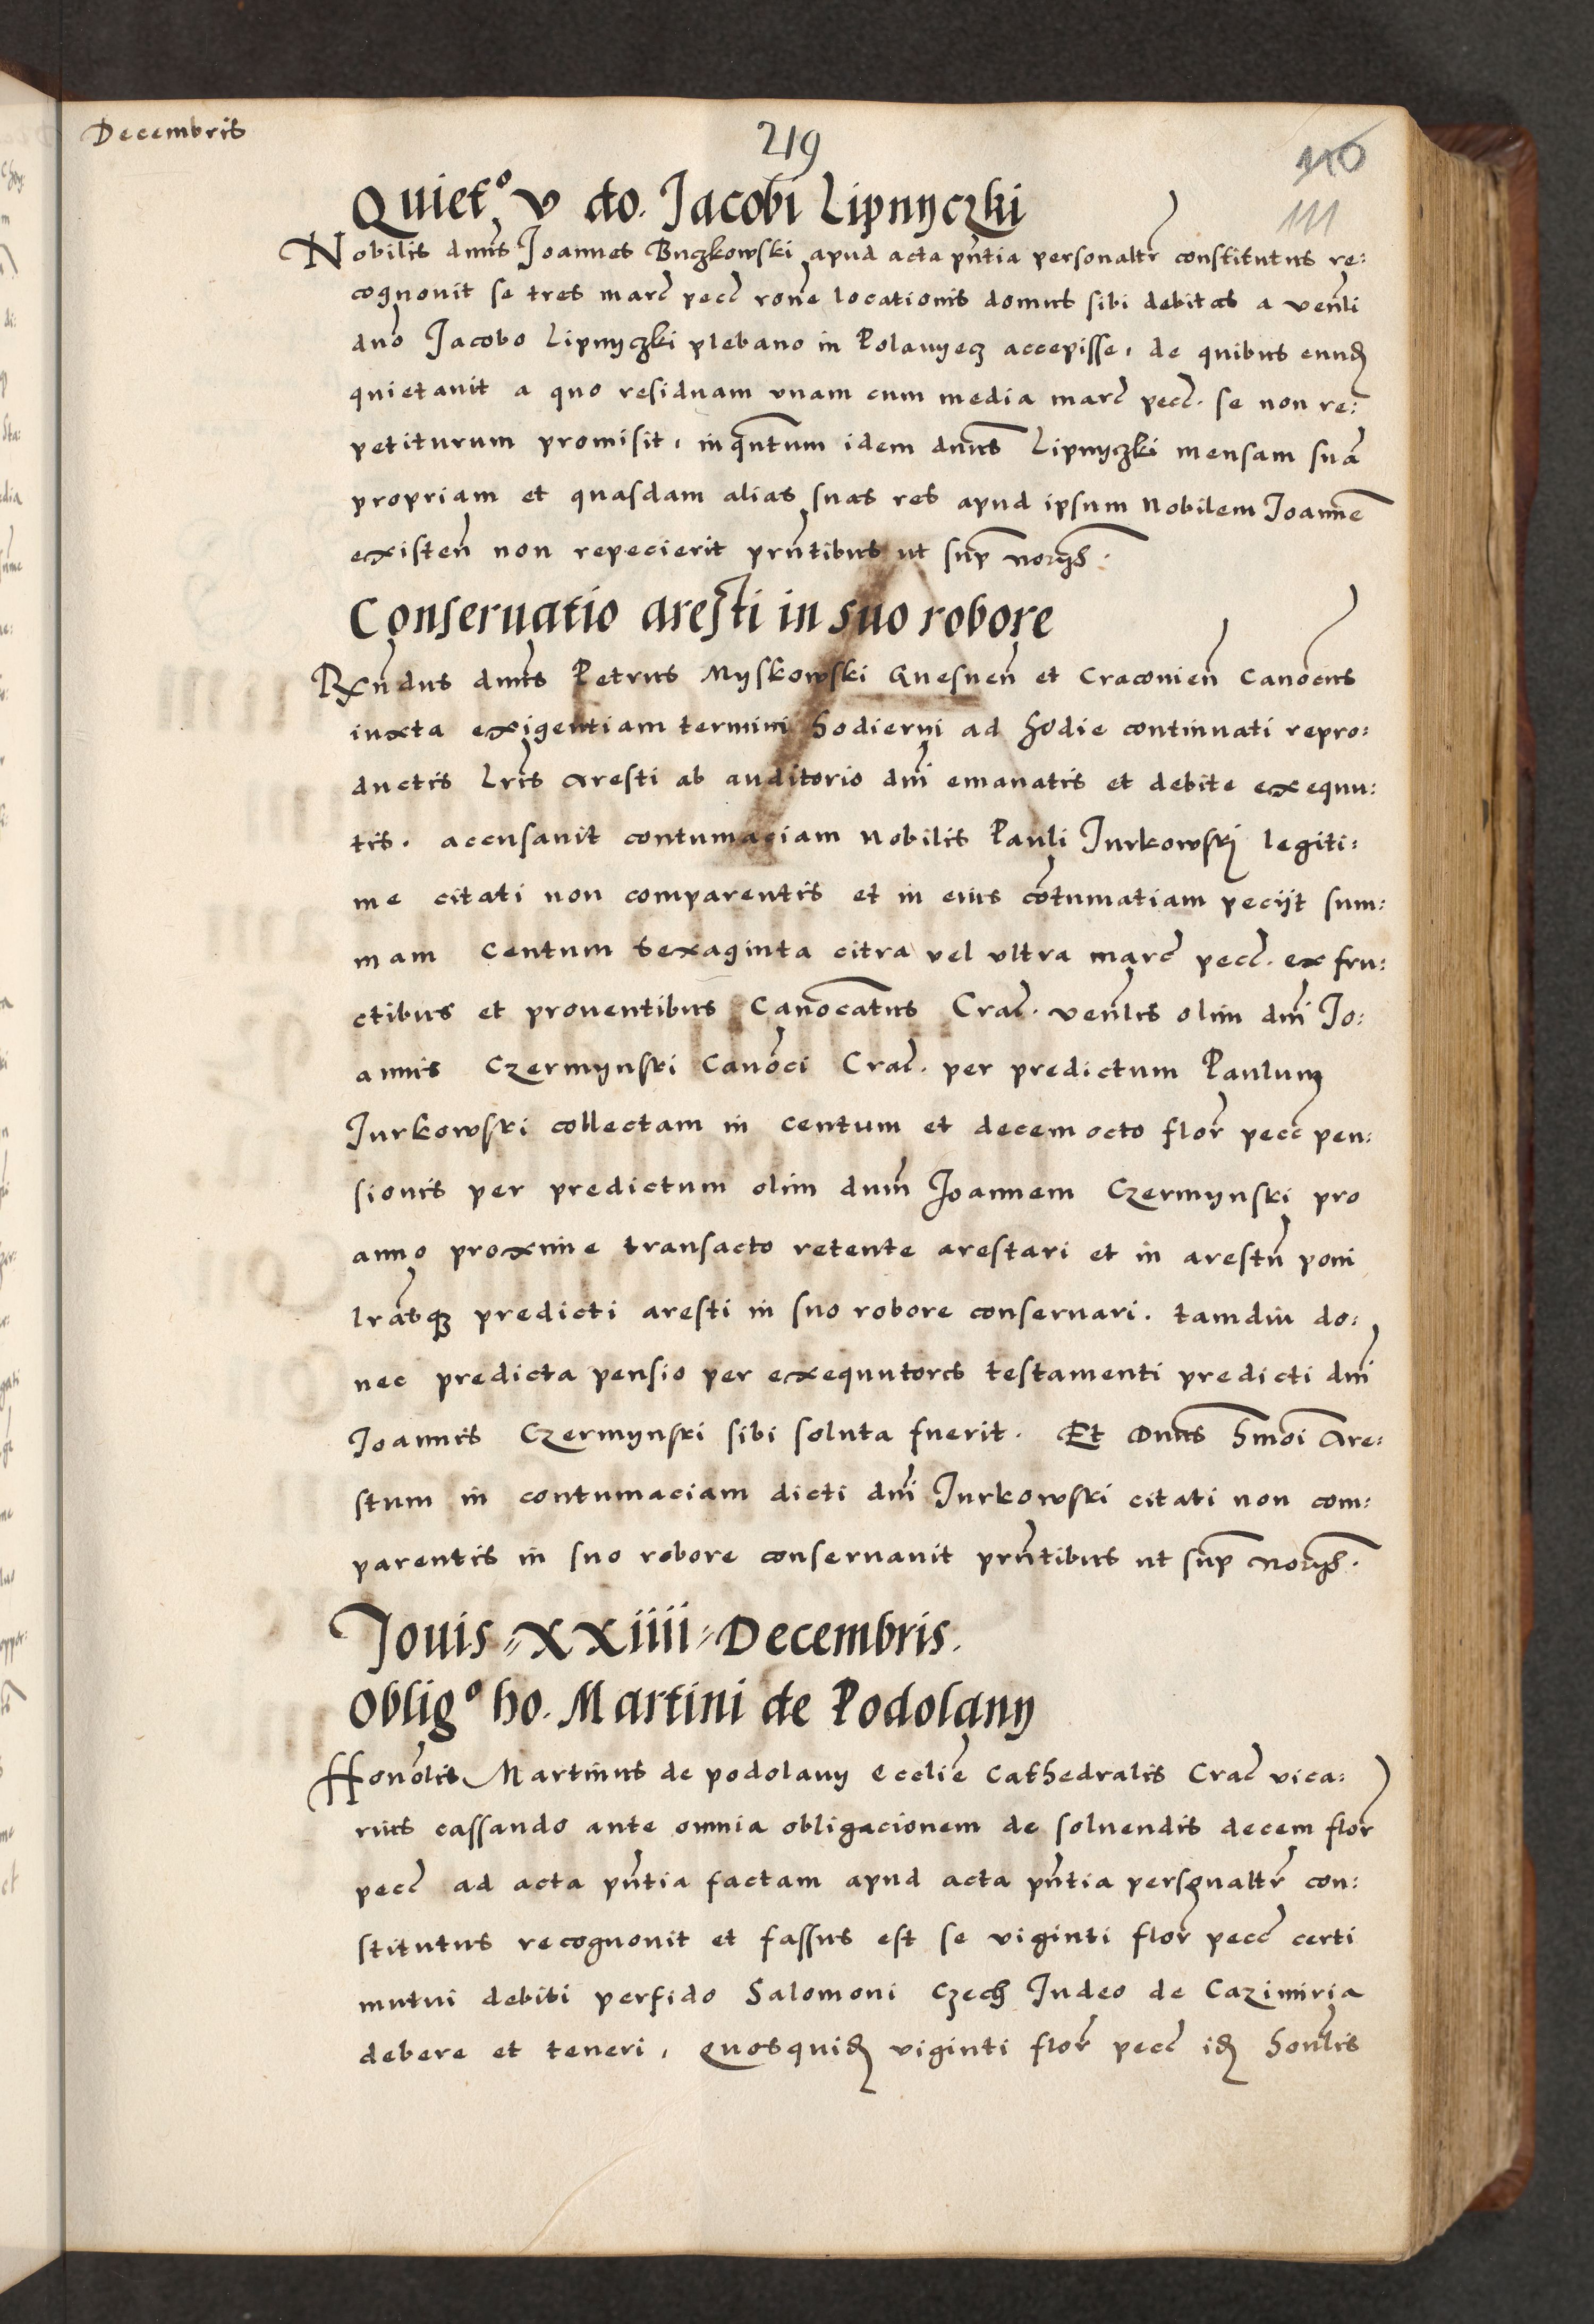 Decembris
219
110
111
Quiet.º v do. Jacobi Lipnyczki
Nobilis dnus Joannes Buczkowski apud acta pñtia personaltr constitutus re:
cognouit se tres marc pecc rone locationis domus sibi debitas a venli
dno Jacobo Lipnyczki plebano in Polanyecz accepisse, de quibus eund
quietauit a quo residuam vnam cum media marc pecc. se non re:
petiturum promisit, inqntum idem dnus Lipnyczki mensam sua
propriam et quasdam alias suas res apud ipsum Nobilem Joanne
existen non repecierit prntibus ut sup
Conseruatio aresti in suo robore
Rxndus dnus Petrus Myskowski Gnesnen et Craconien Canocus
iuxta exigentiam termini hodierni ad hodie continuati repro:
ductis lris Aresti ab auditorio dni emanatis et debite exequu:
tis. accusauit contumaciam Nobilis Pauli Jurkowski legiti:
me citati non comparentis et in eius cotumatiam peciit sum:
mam Centum sexaginta citra vel vltra marc pecc. ex fru:
ctibus et prouentibus Canocatus Crac. venlis olim dni Jo:
annis Czermynski Canoci Crac. per predictum Paulum
Jurkowski collectam in centum et decem octo flor pecc pen:
sionis per predictum olim dnum Joannem Czermynski pro
anno proxime transacto retente arestari et in arestu poni
lrasq3 predicti aresti in suo robore conseruari. tamdiu do:
nec predicta pensio per exequutores testamenti predicti dni
Joannis Czermynski sibi soluta fuerit. Et Dnus hmoi Are:
stum in contumaciam dicti dni Jurkowski citati non com:
parentis in suo robore conseruauit prntibus ut sup
Jouis XXiiii Decembris.
Oblig.º ho. Martini de Podolany
Honolis Martinus de podolany ecclie Cathedralis Crac vica:
rius cassando ante omnia obligacionem de soluendis decem flor
pecc ad acta pñtia factam apud acta pñtia personaltr con:
stitutus recognouit et fassus est se viginti flor pecc certi
mutui debiti perfido Salomoni Czech Judeo de Cazimiria
debere et teneri, quosquid viginti flor pecc id honlis